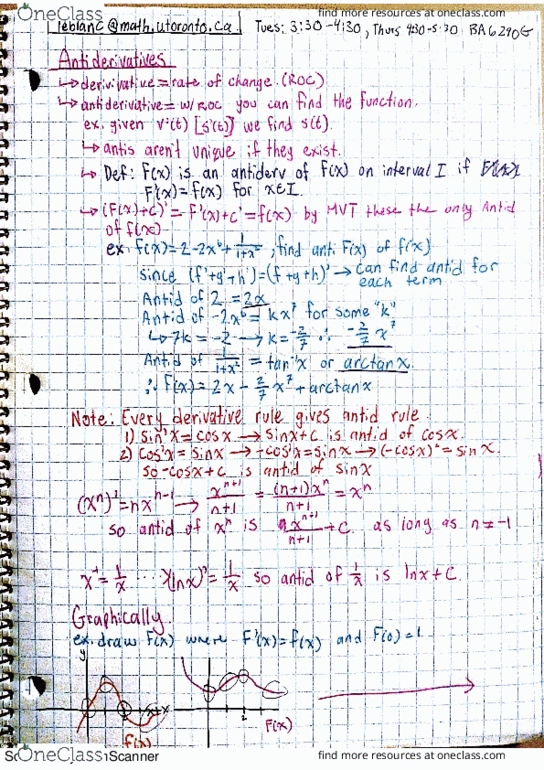 OneClass
find more resources at oneclass.com
leblanc@math.utoronto.ca Tues: 3:30-4:30, Thurs 4:30-5:30 BA6290G
Antiderivatives
↳ derivivative = rate of change. (ROC)
↳ antiderivative = w/ ROC you can find the function.
ex. given v'(t) [s'(t)] we find s(t).
↳ antis aren't unique if they exist.
↳ Def: F(x) is an antiderv of F(x) on interval I if
F'(x) = f(x) for x∈I.
↳ (F(x)+c)' = F'(x)+c' = f(x) by MVT these the only Antid
of f(x)
ex. f(x) = 2-2x⁶+ 1/(1+x²), find anti. F(x) of f(x)
since (f'+g'+h') = (f+g+h)' → can find antid for
each term
Antid of 2 = 2x
Antid of -2x⁶ = kx⁷ for some "k"
↳ 7k = -2 → k = -2/7 ∴ -2/7 x⁷
Antid of 1/(1+x²) = tan⁻¹x or arctanx.
∴ F(x) = 2x - 2/7 x⁷ + arctanx
Note: Every derivative rule gives antid rule.
1) sin'x = cosx → sinx+c is antid of cosx.
2) cos'x = sinx → -cos'x = sinx → (-cosx)' = sinx.
so -cosx+c is antid of sinx
(xⁿ)' = nxⁿ⁻¹ → xⁿ⁺¹/(n+1) = (n+1)xⁿ/(n+1) = xⁿ
so antid of xⁿ is xⁿ⁺¹/(n+1) + c as long as n≠-1
x⁻¹ = 1/x ... (lnx)' = 1/x so antid of 1/x is lnx+c.
Graphically.
ex. draw F(x) where F'(x) = f(x) and F(0) = 1
y
x
2
f(x)
F(x)
OneClass
Scanner
find more resources at oneclass.com